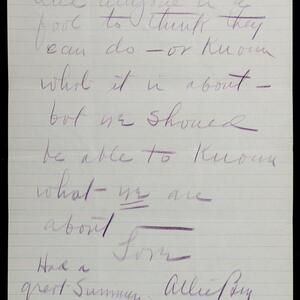 and anyone is a
fool to think they
can do — or known
what it is about —
but we should
be able to known
what we are
about
Love
Had a
great Summer.